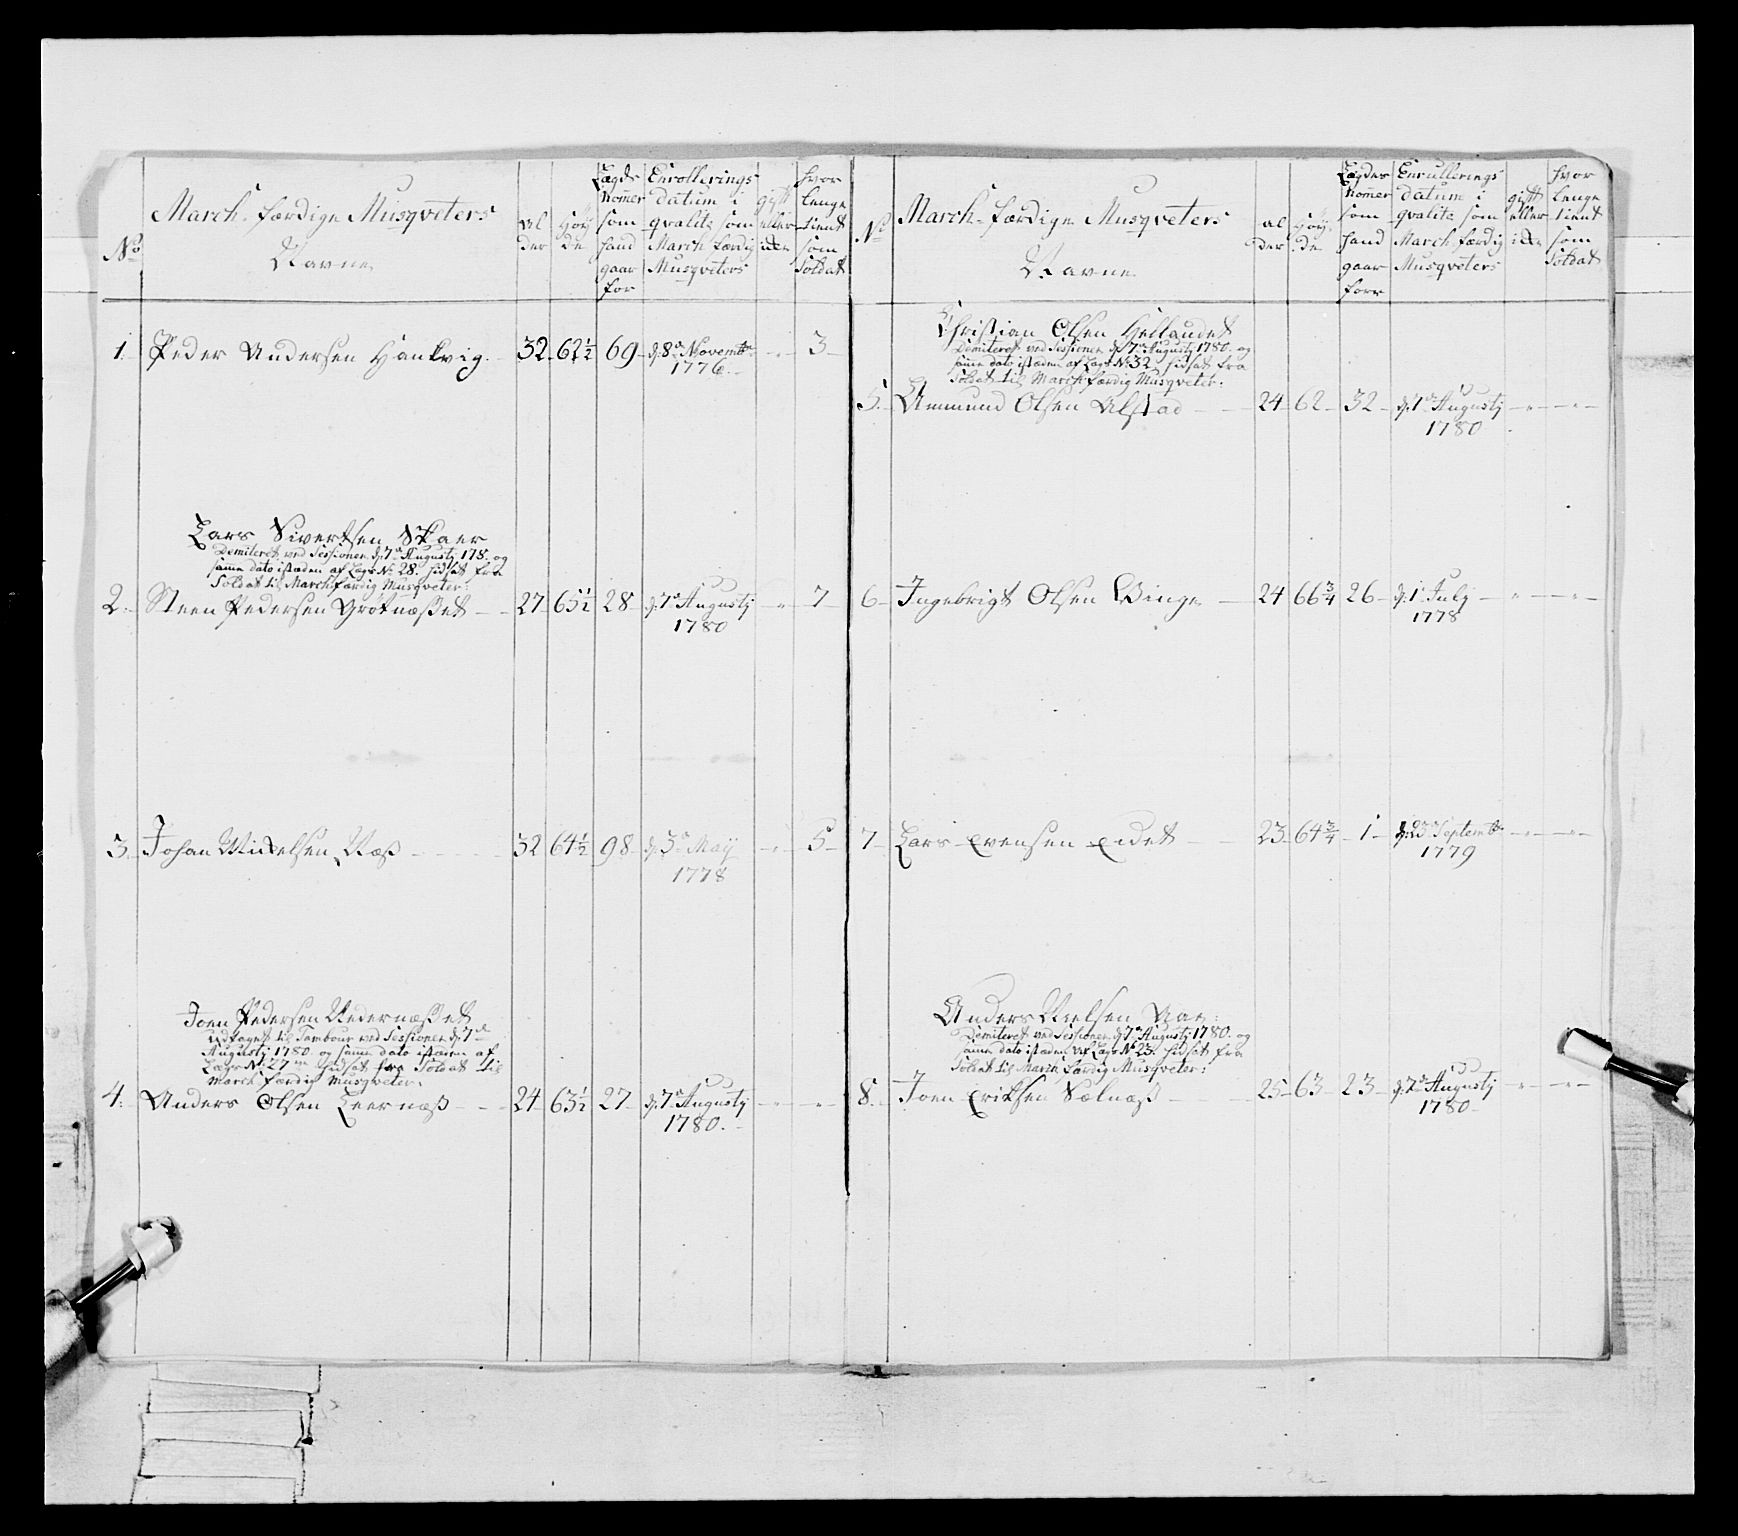 No
March-færdige Musqveters
Navne
al
der
Høy
de
Lægds
Nomer
som
hand
gaar
for
Enrollerings
datum i
qvalite som
March færdig
Musqveters
gift
eller
icke
hvor
lenge
tient
som
Soldat
1. Peder Andersen Hankvig. 32 62½ 69 d. 8de Novemb. - 3
1776.
Lars Sivertsen Skaer
Demiteret ved Sessionen d. 7de Augustj 178. og
samme dato isteden af Lægs No 28. hidsat fra
Soldat til March færdig Musqveter:
2. Steen Pedersen Grotnæsset 27 65½ 28 d. 7de Augustj - 7
1780
3. Johan Mickelsen Næss 32 64½ 98 d. 3de May - 5
1778
Joen Pedersen Nedernæsset
udtaget til Tambour ved Sessionen d. 7de
Augustj 1780. og samme dato isteden af
Lægs No 27 hidsat fra Soldat til
March færdig Musqveter:
4. Anders Olsen Leernæss 24 63½ 27 d. 7de Augustj - -
1780.
No
March-færdige Musqveters
Navne
al
der
Høy
de
Lægder
Nomer
som
hand
gaar
forr
Enrullerings
datum i
qvalite som
March færdig
Musqveters
gift
eller
icke
hvor
lenge
tient
som
Soldat
Christian Olsen Hellandet
Demiteret ved Sessionen d. 7de Augustj 1780. og
samme dato isteden af Lægs No 32 hidsat fra
Soldat til March færdig Musqveter:
5. Ammund Olsen Alstad 24 62 32 d. 7de Augustj - -
1780
6 Ingebrigt Olsen Winge 24 66¾ 26 d. 1 Julj - -
1778
7 Lars Evensen Eidet 23 64¾ 1 d. 23de Septemb. - -
1779
Anders Nielsen Aae:
Demiteret ved Sessionen d. 7de Augustj 1780. og
samme dato isteden af Lægs No 23. hidsat fra
Soldat til March færdig Musqveter:
8. Joen Eriksen Sælnæss 25 63 23 d. 7de Augustj - -
1780